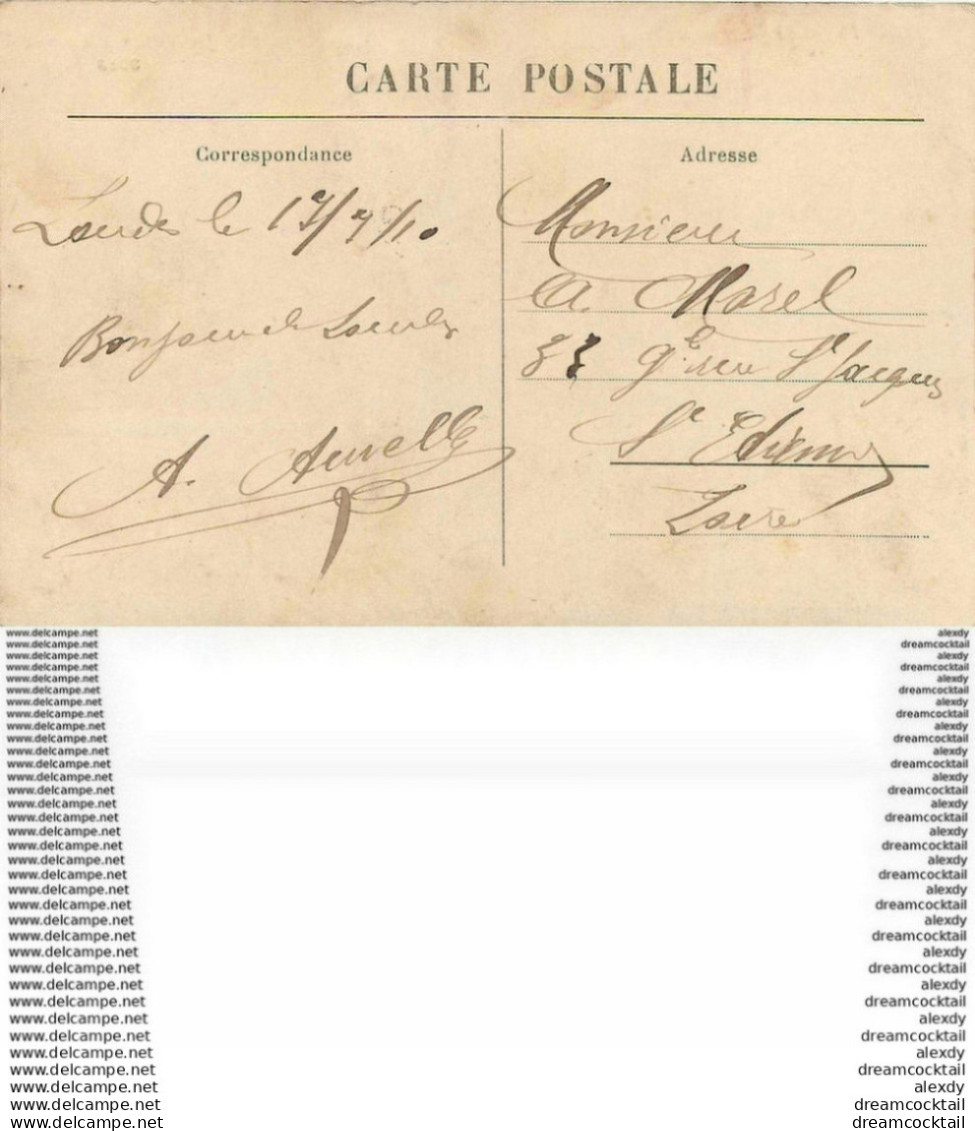 CARTE POSTALE
Correspondance
Lourdes le 17/9/10
Bonjour de Lourdes
A.
Adresse
Monsieur
A. Morel
33 gde rue St Jacques
St Etienne
Loire
www.delcampe.net alexdy
www.delcampe.net dreamcocktail
www.delcampe.net alexdy
www.delcampe.net dreamcocktail
www.delcampe.net alexdy
www.delcampe.net dreamcocktail
www.delcampe.net alexdy
www.delcampe.net dreamcocktail
www.delcampe.net alexdy
www.delcampe.net dreamcocktail
www.delcampe.net alexdy
www.delcampe.net dreamcocktail
www.delcampe.net alexdy
www.delcampe.net dreamcocktail
www.delcampe.net alexdy
www.delcampe.net dreamcocktail
www.delcampe.net alexdy
www.delcampe.net dreamcocktail
www.delcampe.net alexdy
www.delcampe.net dreamcocktail
www.delcampe.net alexdy
www.delcampe.net dreamcocktail
www.delcampe.net alexdy
www.delcampe.net dreamcocktail
www.delcampe.net alexdy
www.delcampe.net dreamcocktail
www.delcampe.net alexdy
www.delcampe.net dreamcocktail
www.delcampe.net alexdy
www.delcampe.net dreamcocktail
www.delcampe.net alexdy
www.delcampe.net dreamcocktail
www.delcampe.net alexdy
www.delcampe.net dreamcocktail
www.delcampe.net dreamcocktail